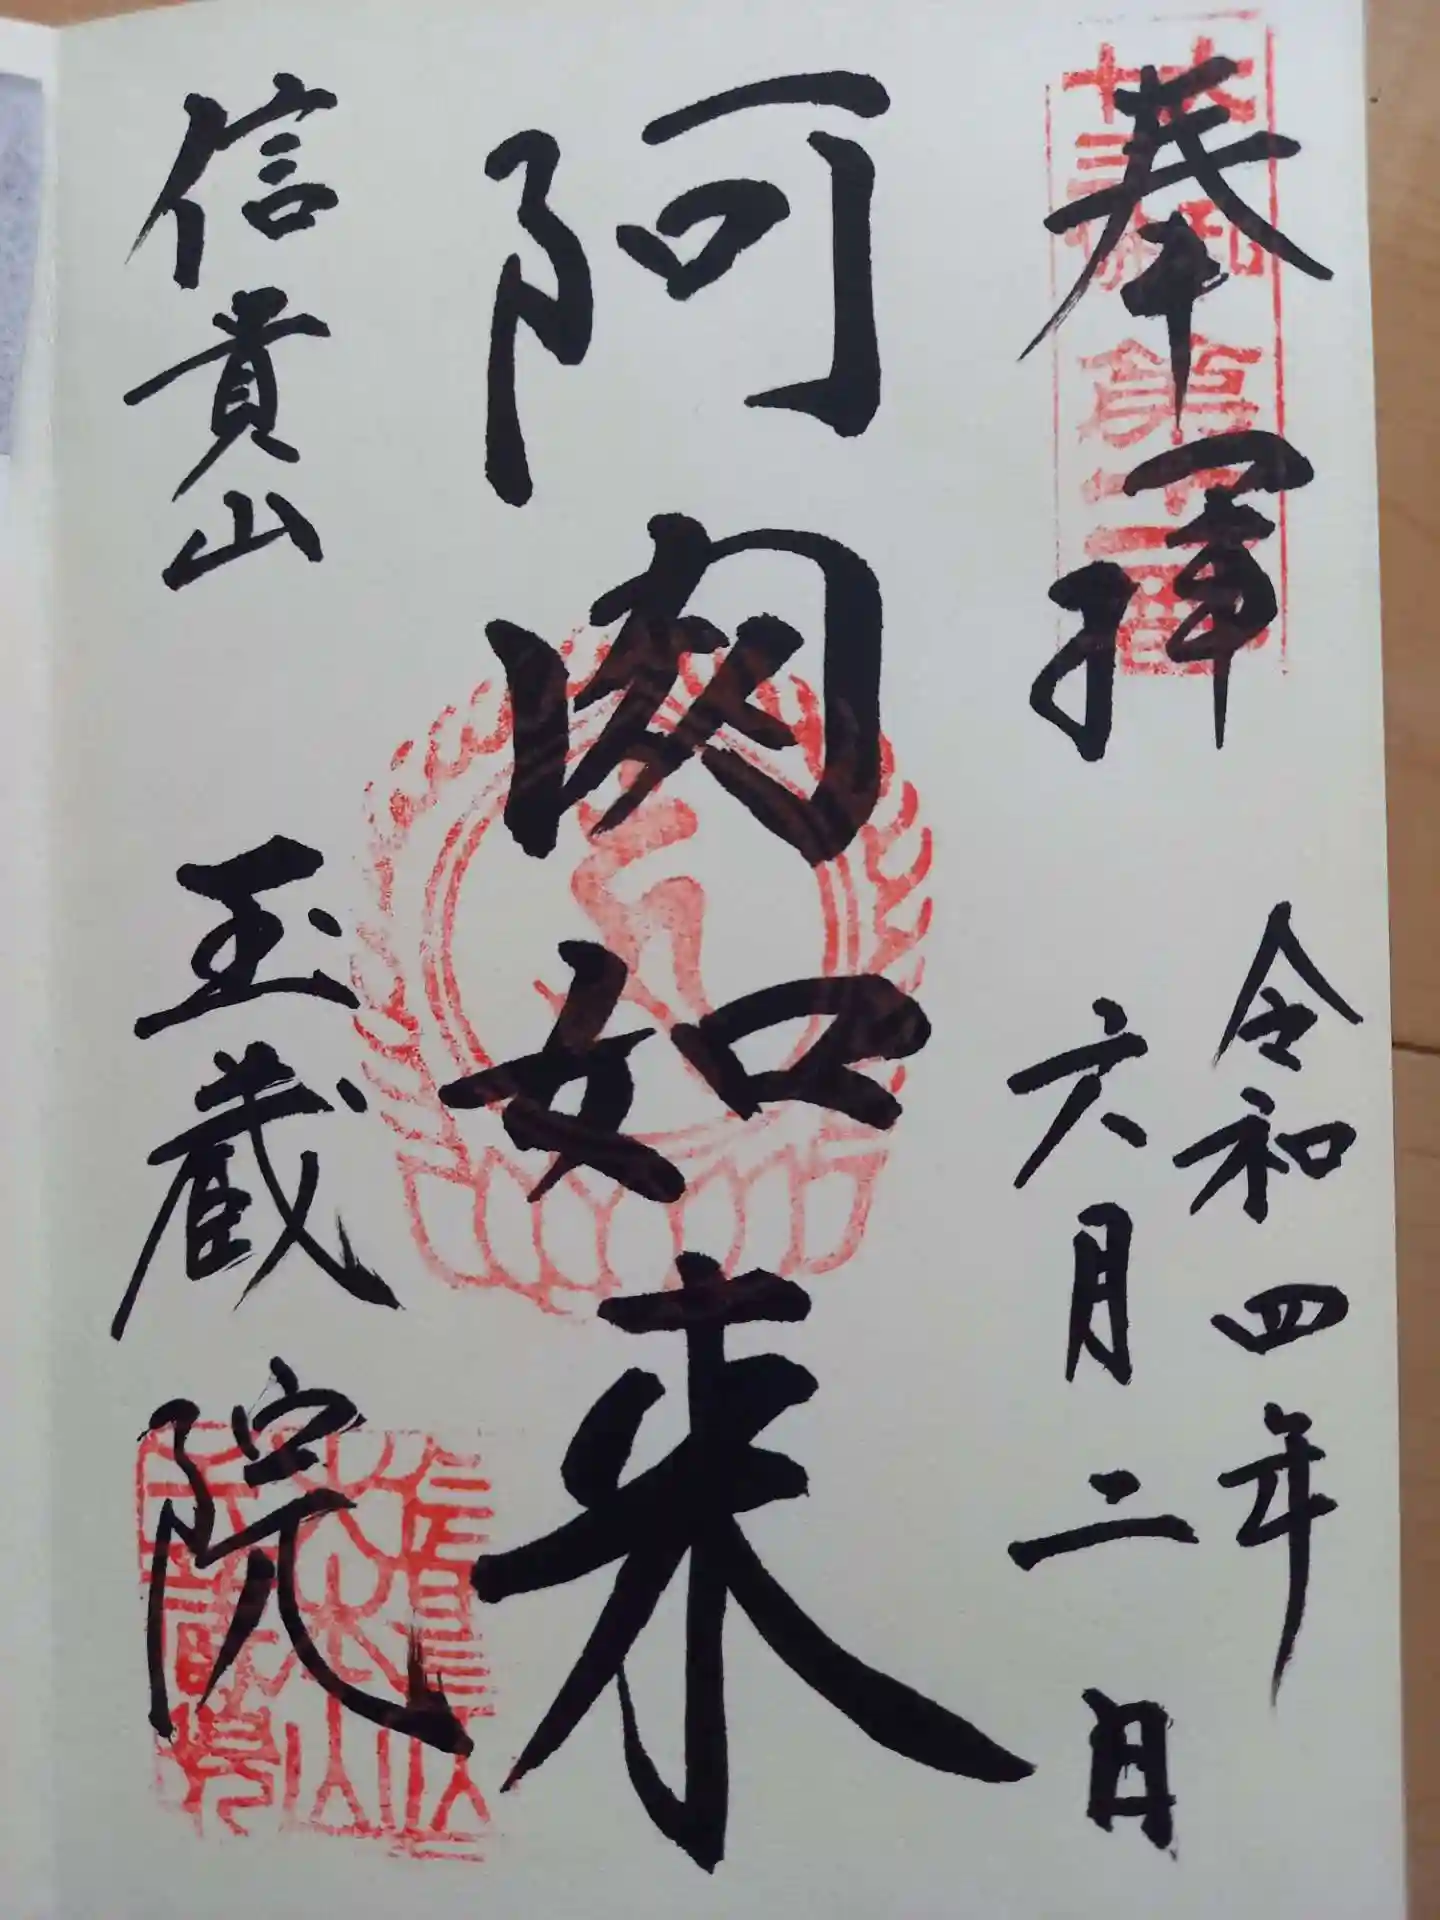 奉拝
令和四年
六月二日
阿閦如来
信貴山 玉蔵院